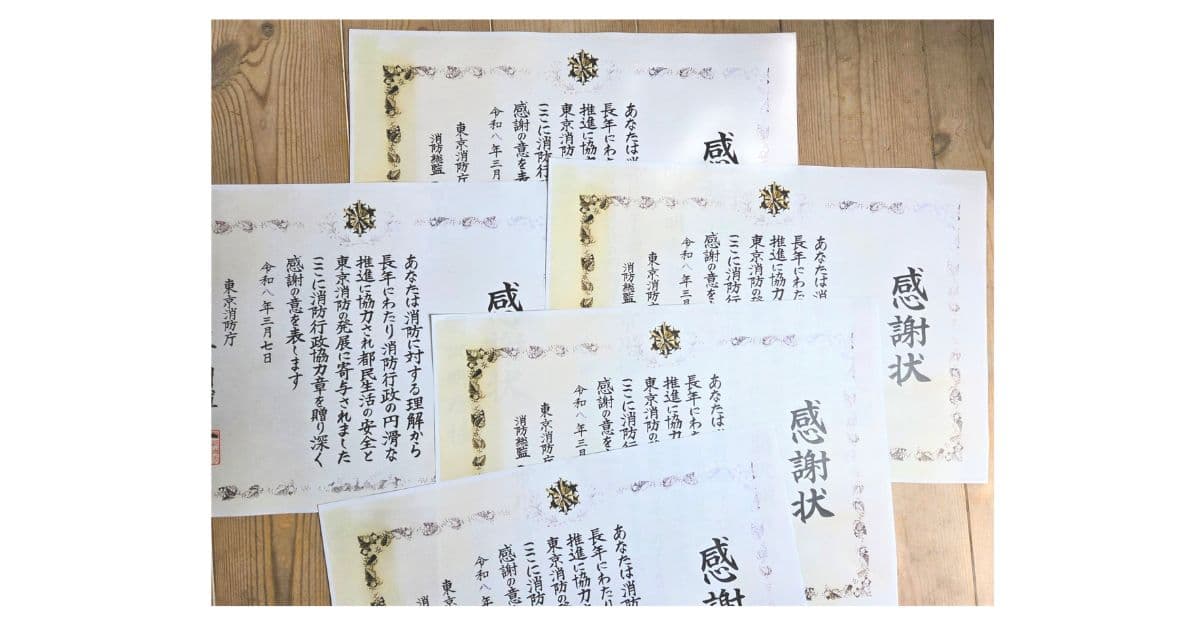 感
あなたは消
長年にわた
推進に協力
東京消防の
ここに消防行
感謝の意を表
令和八年三月
東京消防庁
消防総監
感謝状
あなたは消
長年にわた
推進に協力
東京消防の
ここに消防行
感謝の意を
令和八年三月
東京消防庁
消防総監
感
あなたは消防に対する理解から
長年にわたり消防行政の円滑な
推進に協力され都民生活の安全と
東京消防の発展に寄与されました
ここに消防行政協力章を贈り深く
感謝の意を表します
令和八年三月七日
東京消防庁
感謝状
あなたは
長年にわ
推進に協力
東京消防の
ここに消防行
感謝の意を
令和八年三
東京消防庁
消防総監
感謝
あなたは消防
長年にわた
推進に協力
東京消防の発
ここに消防
感謝の意
令和八年
東京消
消